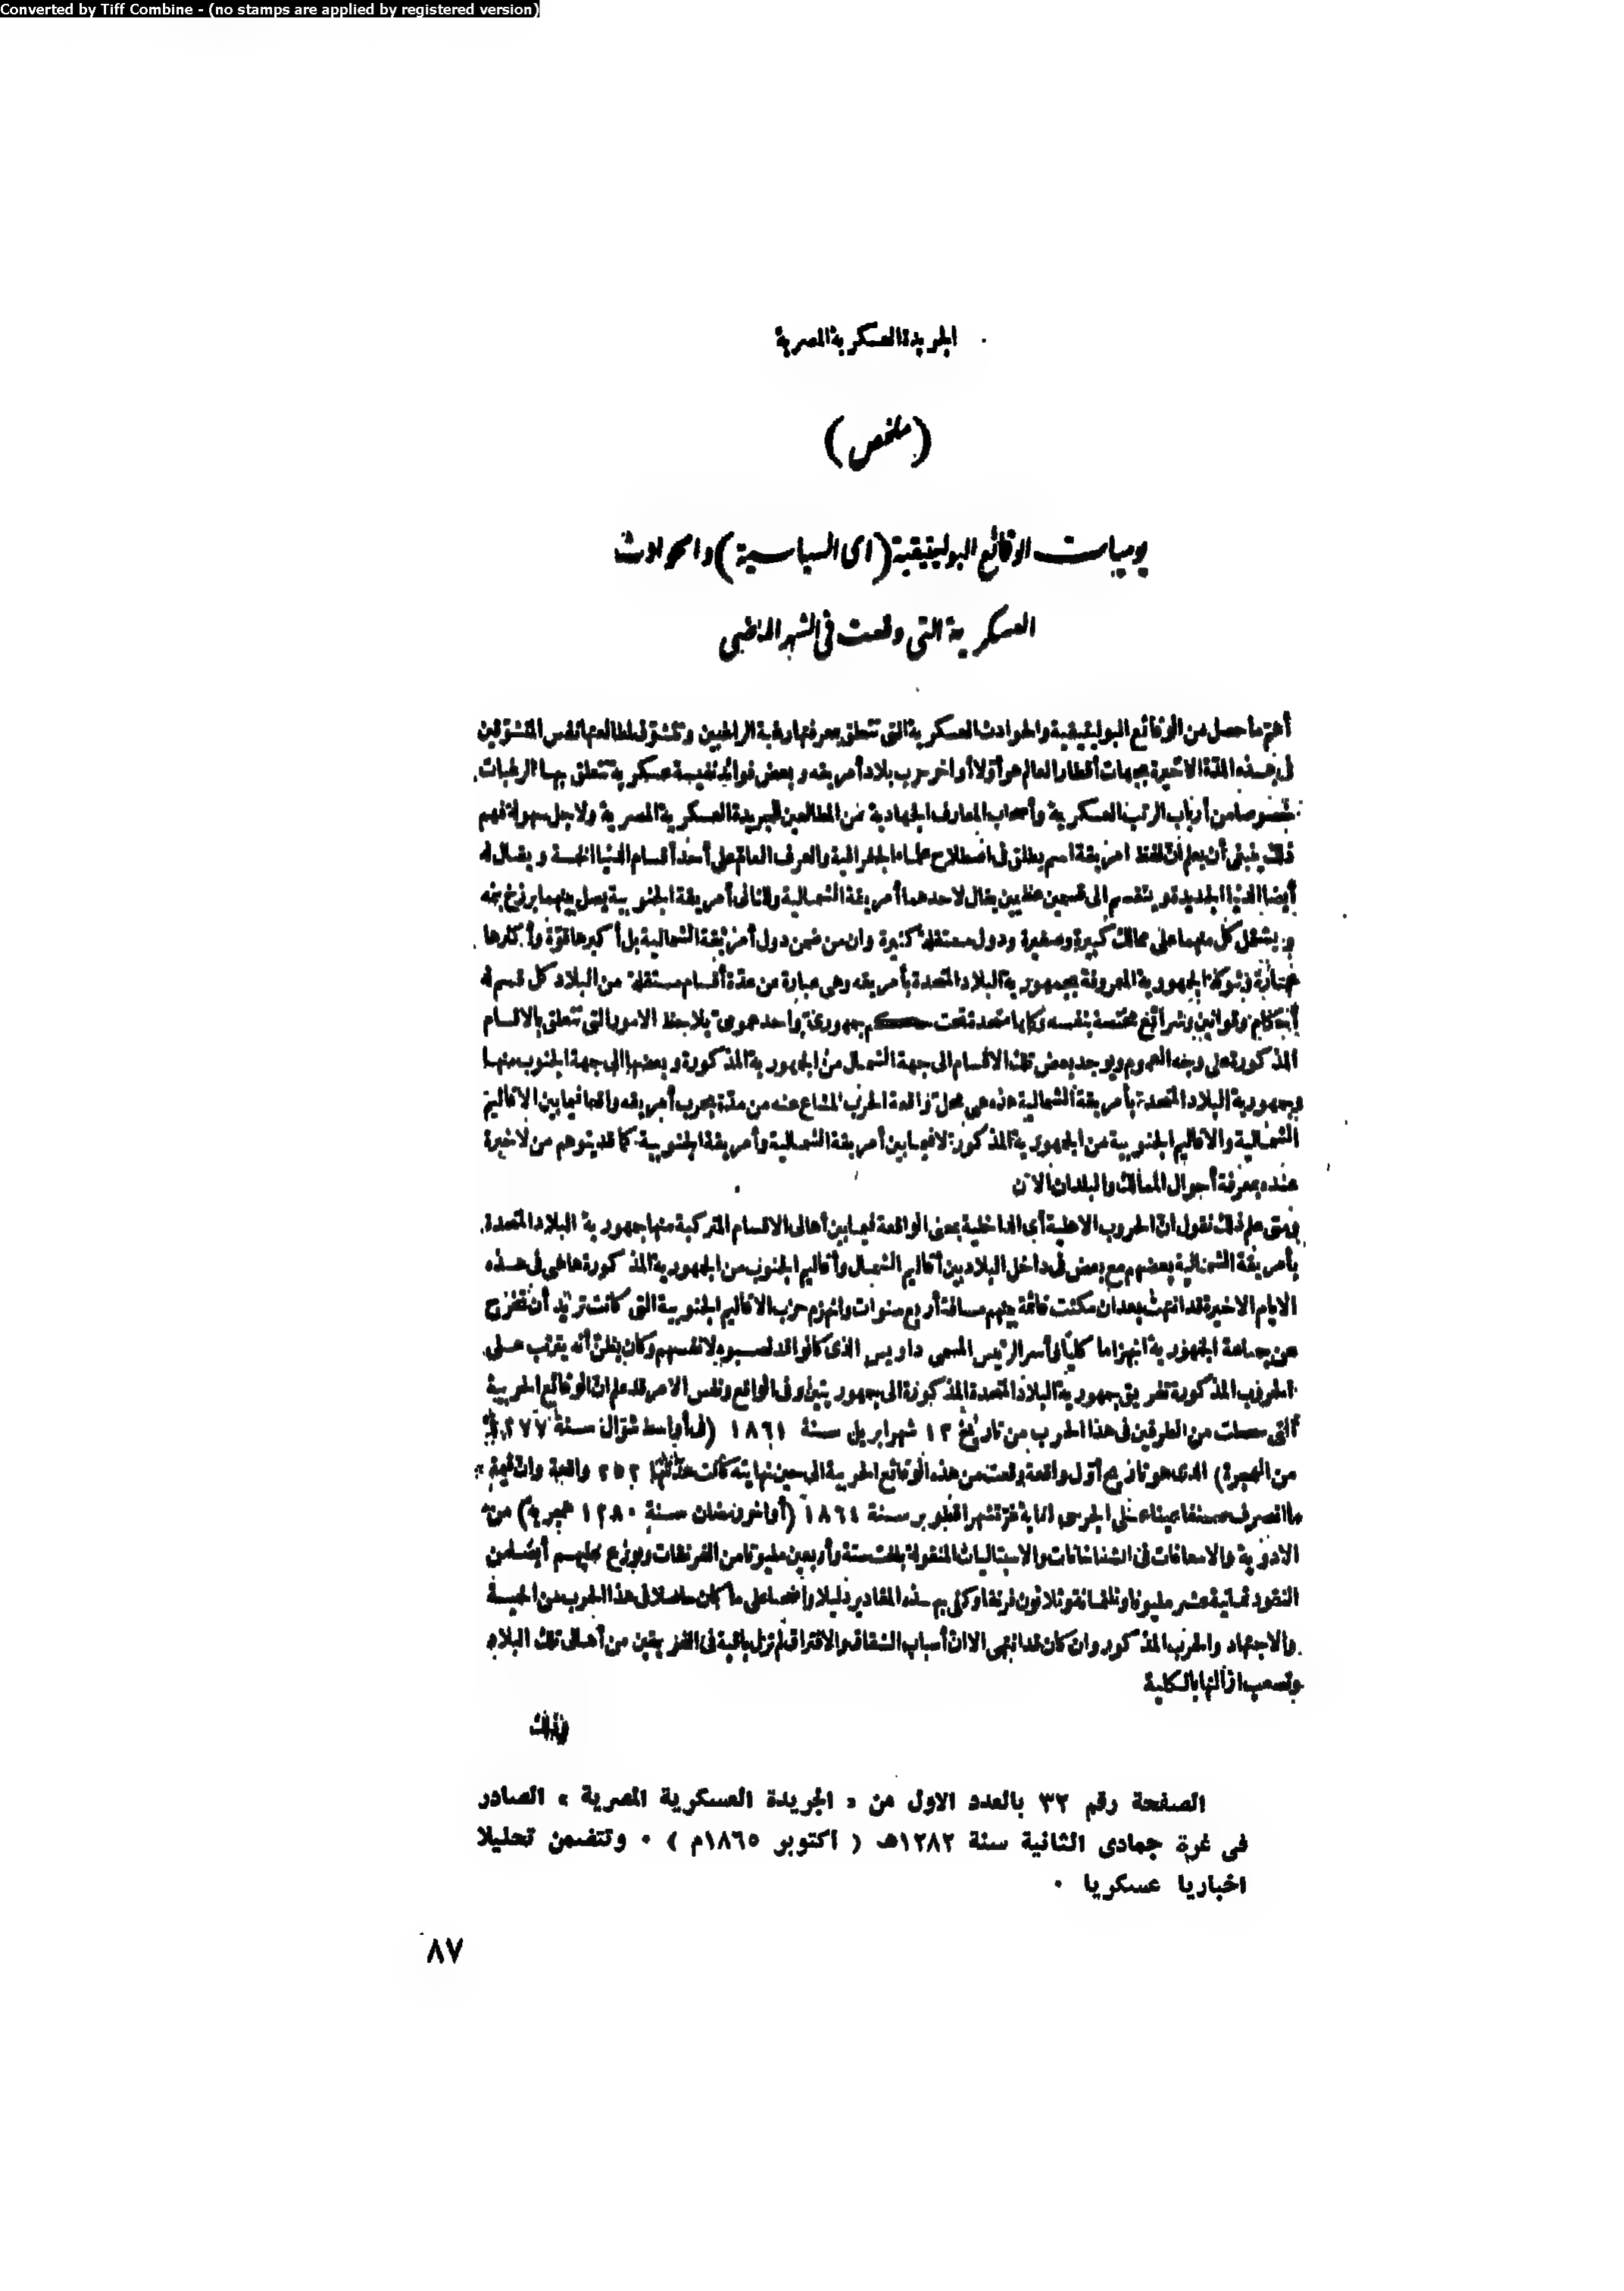 Converted by Tiff Combine - (no stamps are applied by registered version)
الجريدة العسكرية المصرية
(ملخص)
يوميات الوقائع البوليتيقية (اى السياسية) والحوادث
العسكرية التى وقعت فى الشهر الماضى
أهم ما حصل من الوقائع البوليتيقية والحوادث العسكرية التى تتعلق بمعرفتها رغبة الراغبين وتتشوق لمطالعتها نفس المتشوقين
فى هذه المدة الاخيرة بجهات أقطار العالم هو أولا أواخر حرب بلاد أمريقه وبعض فوائد نفيسة عسكرية تتعلق بها الرغبات
خصوصا من أرباب الرتب العسكرية وأصحاب المعارف الجهادية من المطالعين للجريدة العسكرية المصرية ولاجل سهولة فهم
ذلك ينبغى أن يعلم أن لفظ امريقة اسم يطلق فى اصطلاح علماء الجغرافية والعرف العام على أحد أقسام الدنيا الخمسة ويقال له
أيضا الدنيا الجديدة وينقسم الى قسمين عظيمين يقال لاحدهما أمريقة الشمالية والثانى أمريقة الجنوبية يصل بينهما برزخ بنمه
ويشتمل كل منهما على ممالك كبيرة وصغيرة ودول مستقلة كثيرة وان من ضمن دول أمريقة الشمالية بل أكبرها قوة وأكثرها
وشوكة الجمهورية المعروفة بجمهورية البلاد المتحدة بأمريقه وهى عبارة عن عدة أقسام مستقلة من البلاد كل قسم له
أحكام وقوانين وشرائع مختصة بنفسه وكلها متحدة تحت حكم جمهورى واحد عمومى يلاحظ الامور التى تتعلق بالاقسام
المذكورة على وجه العموم ويوجد بعض تلك الاقسام الى جهة الشمال من الجمهورية المذكورة وبعضها الى جهة الجنوب منها
وجمهورية البلاد المتحدة بأمريقة الشمالية هذه هى محل واقعة الحرب المشاع عنه من مدة بحرب أمريقه واقعا فيما بين الاقاليم
الشمالية والاقاليم الجنوبية من الجمهورية المذكورة لا فيما بين أمريقة الشمالية وأمريقة الجنوبية كما قد يتوهم من لا خبرة
عنده بمعرفة أحوال الممالك والبلدان الآن
ومتى علم ذلك نقول ان الحروب الاهلية أى الداخلية بمعنى الواقعة فيما بين أهالى الاقسام المتركبة منها جمهورية البلاد المتحدة
بأمريقة الشمالية بعضهم مع بعض فى داخل البلاد بين أقاليم الشمال وأقاليم الجنوب من الجمهورية المذكورة هاهى فى هذه
الايام الاخيرة قد انتهت بعد ان مكثت قائمة بينهم مسافة أربع سنوات وانهزم حزب الاقاليم الجنوبية التى كانت تريد أن تخرج
عن جماعة الجمهورية انهزاما كليا فى أسر الرئيس المسمى داويس الذى كانوا قد نصبوه لانفسهم وكان يظن أنه يترتب على
الحرب المذكورة تفريق جمهورية البلاد المتحدة المذكورة الى جمهوريتين وفى الواقع ونفس الامر قد علم ان الوقائع الحربية
التى حصلت من الطرفين فى هذا الحرب من تاريخ ١٢ شهر ابريل سنة ١٨٦١ (فى أواسط شوال سنة ١٢٧٧
من الهجرة) الذى هو تاريخ أول واقعة وقعت من هذه الوقائع الحربية الى حين نهايته كانت عدتها ٢٥٢ واقعة وان قيمة
ما انصرف صنفا عينا على الجرحى لغاية غرة شهر اقطوبر سنة ١٨٦٤ (أواخر رمضان سنة ١٢٨٠ هجرية) من
الادوية والاسعافات فى الشفاخانات والاسبتاليات المنقولة بلغت ستة وأربعين مليونا من الفرنقات وتوزع عليهم أيضا من
النقود ثمانية عشر مليونا وثلثمائة وثلاثون فرنقا وكفى بهذه المقادير دليلا واضحا على ما كان حاصلا فى هذا الحرب من الحمية
والاجتهاد والحرب المذكور وان كان قد انتهى الا ان أسباب الشقاق والافتراق لم تزل باقية فى الفريقين من أهالى تلك البلاد
وتصعب ازالتها بالكلية
الصفحة رقم ٣٢ بالعدد الاول من « الجريدة العسكرية المصرية » الصادر
فى غرة جمادى الثانية سنة ١٢٨٢هـ ( اكتوبر ١٨٦٥م ) . وتتضمن تحليلا
اخباريا عسكريا .
٨٧